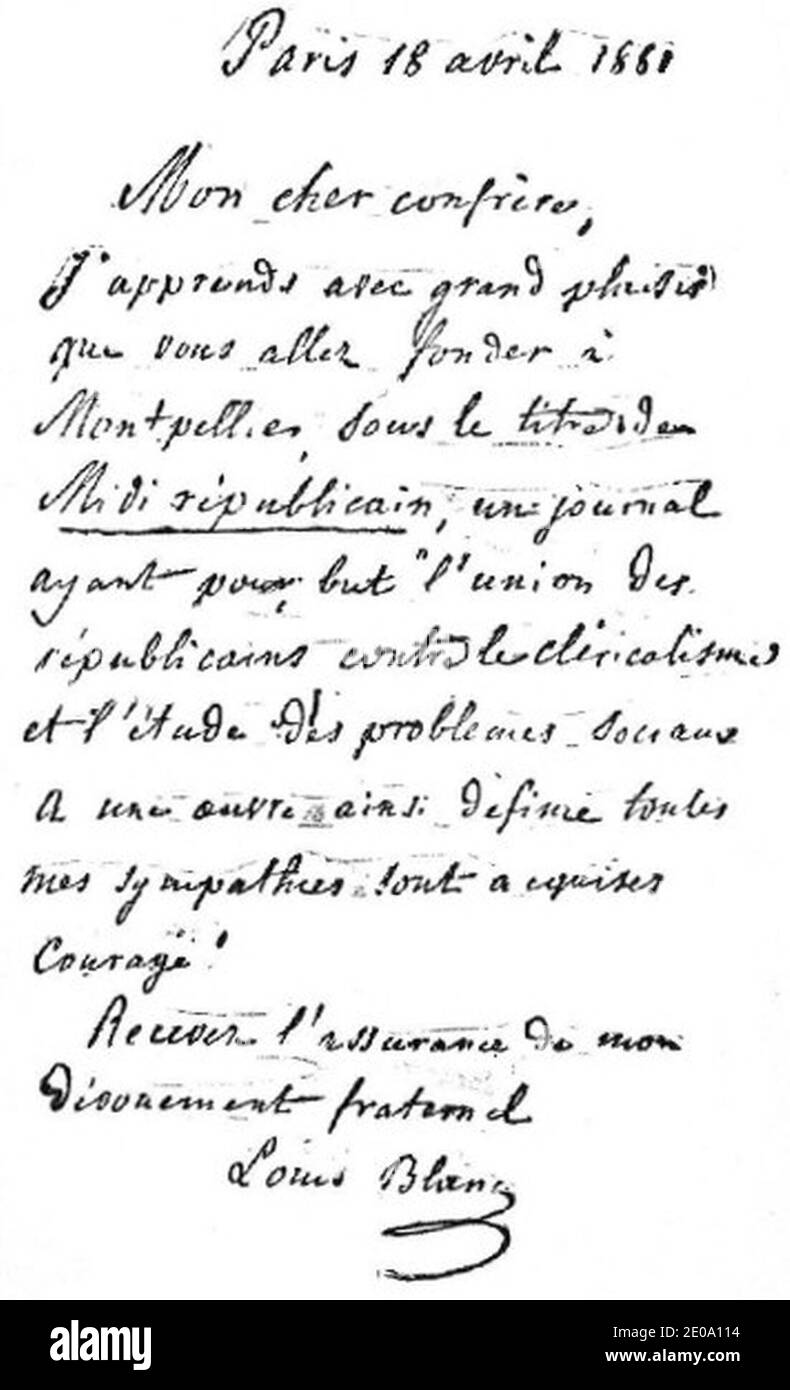 Paris 18 avril 1881
Mon cher confrère,
J'apprends avec grand plaisir
que vous allez fonder à
Montpellier, sous le titre de
Midi républicain, un journal
ayant pour but "l'union des
républicains contre le cléricalisme
et l'étude des problèmes sociaux
A une œuvre ainsi définie toutes
mes sympathies sont acquises
Courage !
Recevez l'assurance de mon
dévouement fraternel
Louis Blanc
alamy
Image ID: 2E0A114
www.alamy.com